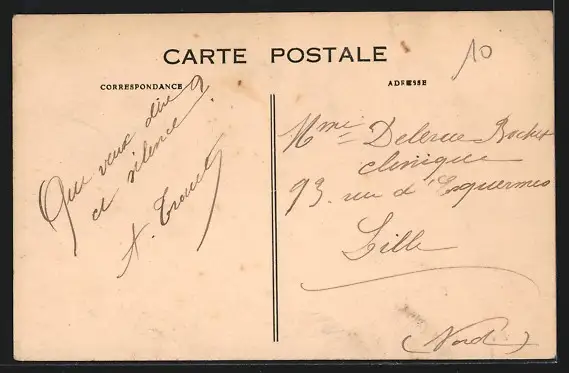 CARTE POSTALE
10
CORRESPONDANCE
Que veux dire
ce silence ?
A. Trouet
ADRESSE
Mme Delerue Rochet
clinique
93. rue d'Esquermes
Lille
(Nord)